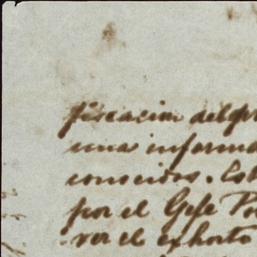 ficacion del pr
una informa
conocidos. Est
por el Gefe Po
ver el exhorto